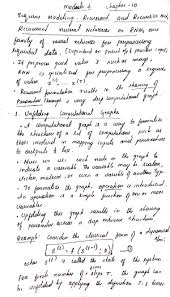 Module 4 Chapter-10
Sequence Modeling: Recurrent and Recursive Nets
Recurrent neural networks or RNNs are
family of neural networks for processing
sequential data. (Dependent on
of previous
If processes grid value X such as image,
RNN is specialized for processing a sequence
of value
Recurrent formulation results in the sharing of
parameters through a very deep computational graph.
1. Unfolding Computational Graphs
A computational graph is a way to formalize
the structure of a set of computations, such as
those involved in mapping inputs and parameters
to outputs & loss.
Here we use each node in the graph to
indicate a variable. The variable may be scalar,
vector, matrix, or even a variable of another type.
To formalize the graph, operation is introduced.
An operation is a simple function of one or more
variables.
Unfolding this graph results in the sharing
of parameters across a deep network structure.
Example: Consider the classical form of a dynamical
S(t) = f(S(t-1); θ)
where S(t) is called the state of the system.
For finite number of steps τ, the graph can
be unfolded by applying the definition τ-1 times